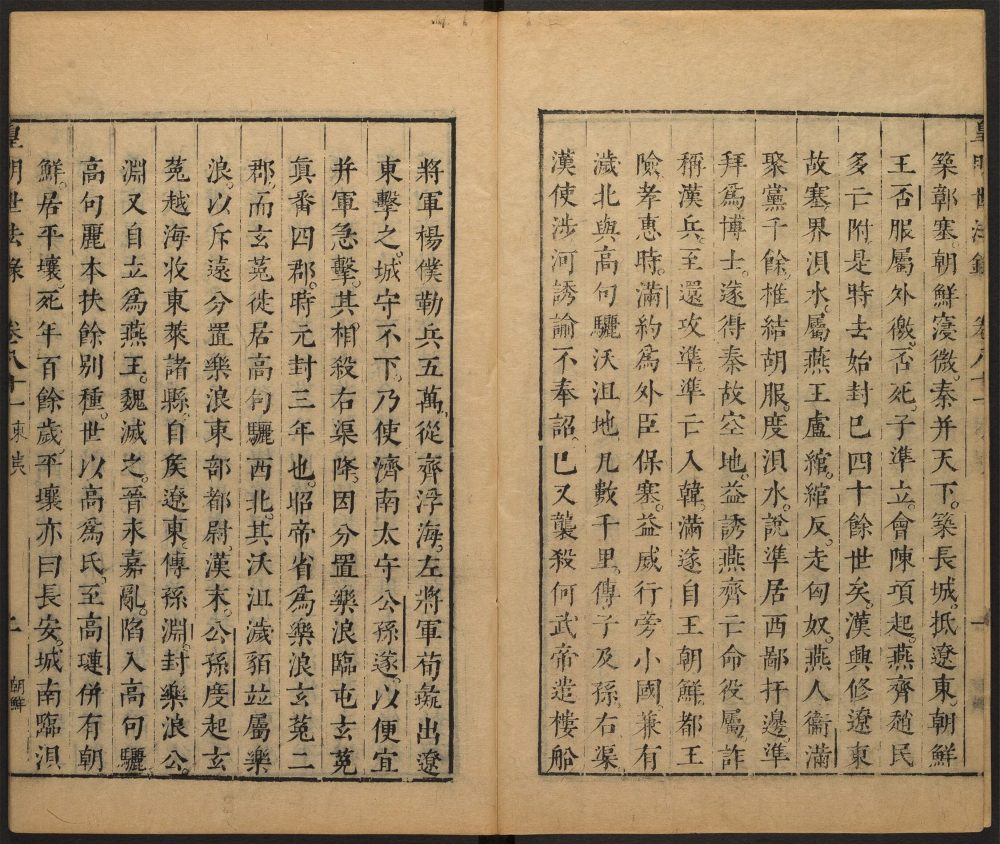 皇明世法錄 卷八十一
築鄣塞。朝鮮寖微。秦并天下。築長城。抵遼東。朝鮮
王否服屬外徼。否死。子準立。會陳項起。燕齊趙民
多亡附。是時去始封巳四十餘世矣。漢興修遼東
故塞。界浿水。屬燕王盧綰。綰反。走匈奴。燕人衞滿
聚黨千餘。椎結胡服。度浿水。說準居西鄙扞邊。準
拜爲博士。遂得秦故空地。益誘燕齊亡命役屬。詐
稱漢兵至。還攻準。準亡入韓。滿遂自王朝鮮。都王
險。孝惠時。滿約爲外臣保塞。益威行旁小國。兼有
濊北與高句驪沃沮地。凡數千里。傳子及孫右渠。
漢使涉河誘諭不奉詔。巳又襲殺何。武帝遣樓船
將軍楊僕勒兵五萬。從齊浮海。左將軍荀彘出遼
東擊之。城守不下。乃使濟南太守公孫遂。以便宜
并軍急擊。其相殺右渠降。因分置樂浪臨屯玄菟
眞番四郡。時元封三年也。昭帝省爲樂浪玄菟二
郡。而玄菟徙居高句驪西北。其沃沮濊貊竝屬樂
浪。以斥遠分置樂浪東部都尉。漢末。公孫度起玄
菟越海收東萊諸縣。自矦遼東。傳孫淵。封樂浪公。
淵又自立爲燕王。魏滅之。晉永嘉亂。陷入高句驪。
高句麗本扶餘別種。世以高爲氏。至高璉併有朝
鮮。居平壤。死年百餘歲。平壤亦曰長安。城南臨浿
皇明世法錄 卷八十一 東夷 二 朝鮮